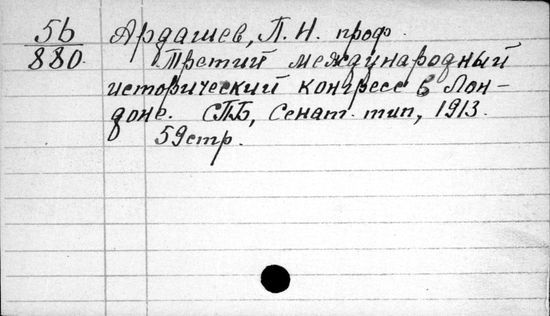 5b Ардашев, П. Н. проф.
880. Третий международный
исторический конгресс в Лон-
доне. СПБ, Сенат. тип, 1913.
59 стр.